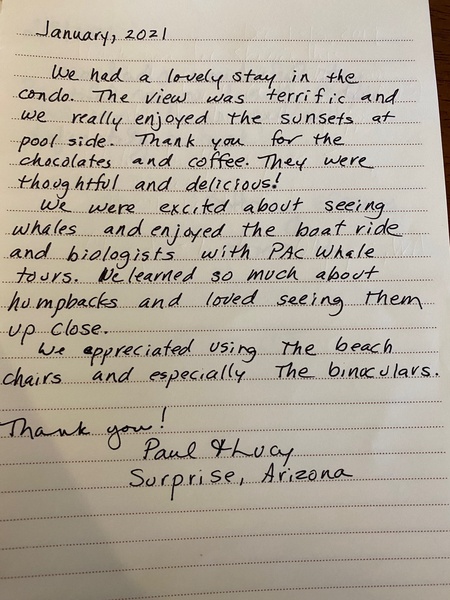 January, 2021
We had a lovely stay in the
condo. The view was terrific and
we really enjoyed the sunsets at
pool side. Thank you for the
chocolates and coffee. They were
thoughtful and delicious!
We were excitd about seeing
whales and enjoyed the boat ride
and biologists with PAC Whale
tours. We learned so much about
humpbacks and loved seeing them
up close.
We appreciated using the beach
chairs and especially the binoculars.
Thank you!
Paul & Lucy
Surprise, Arizona